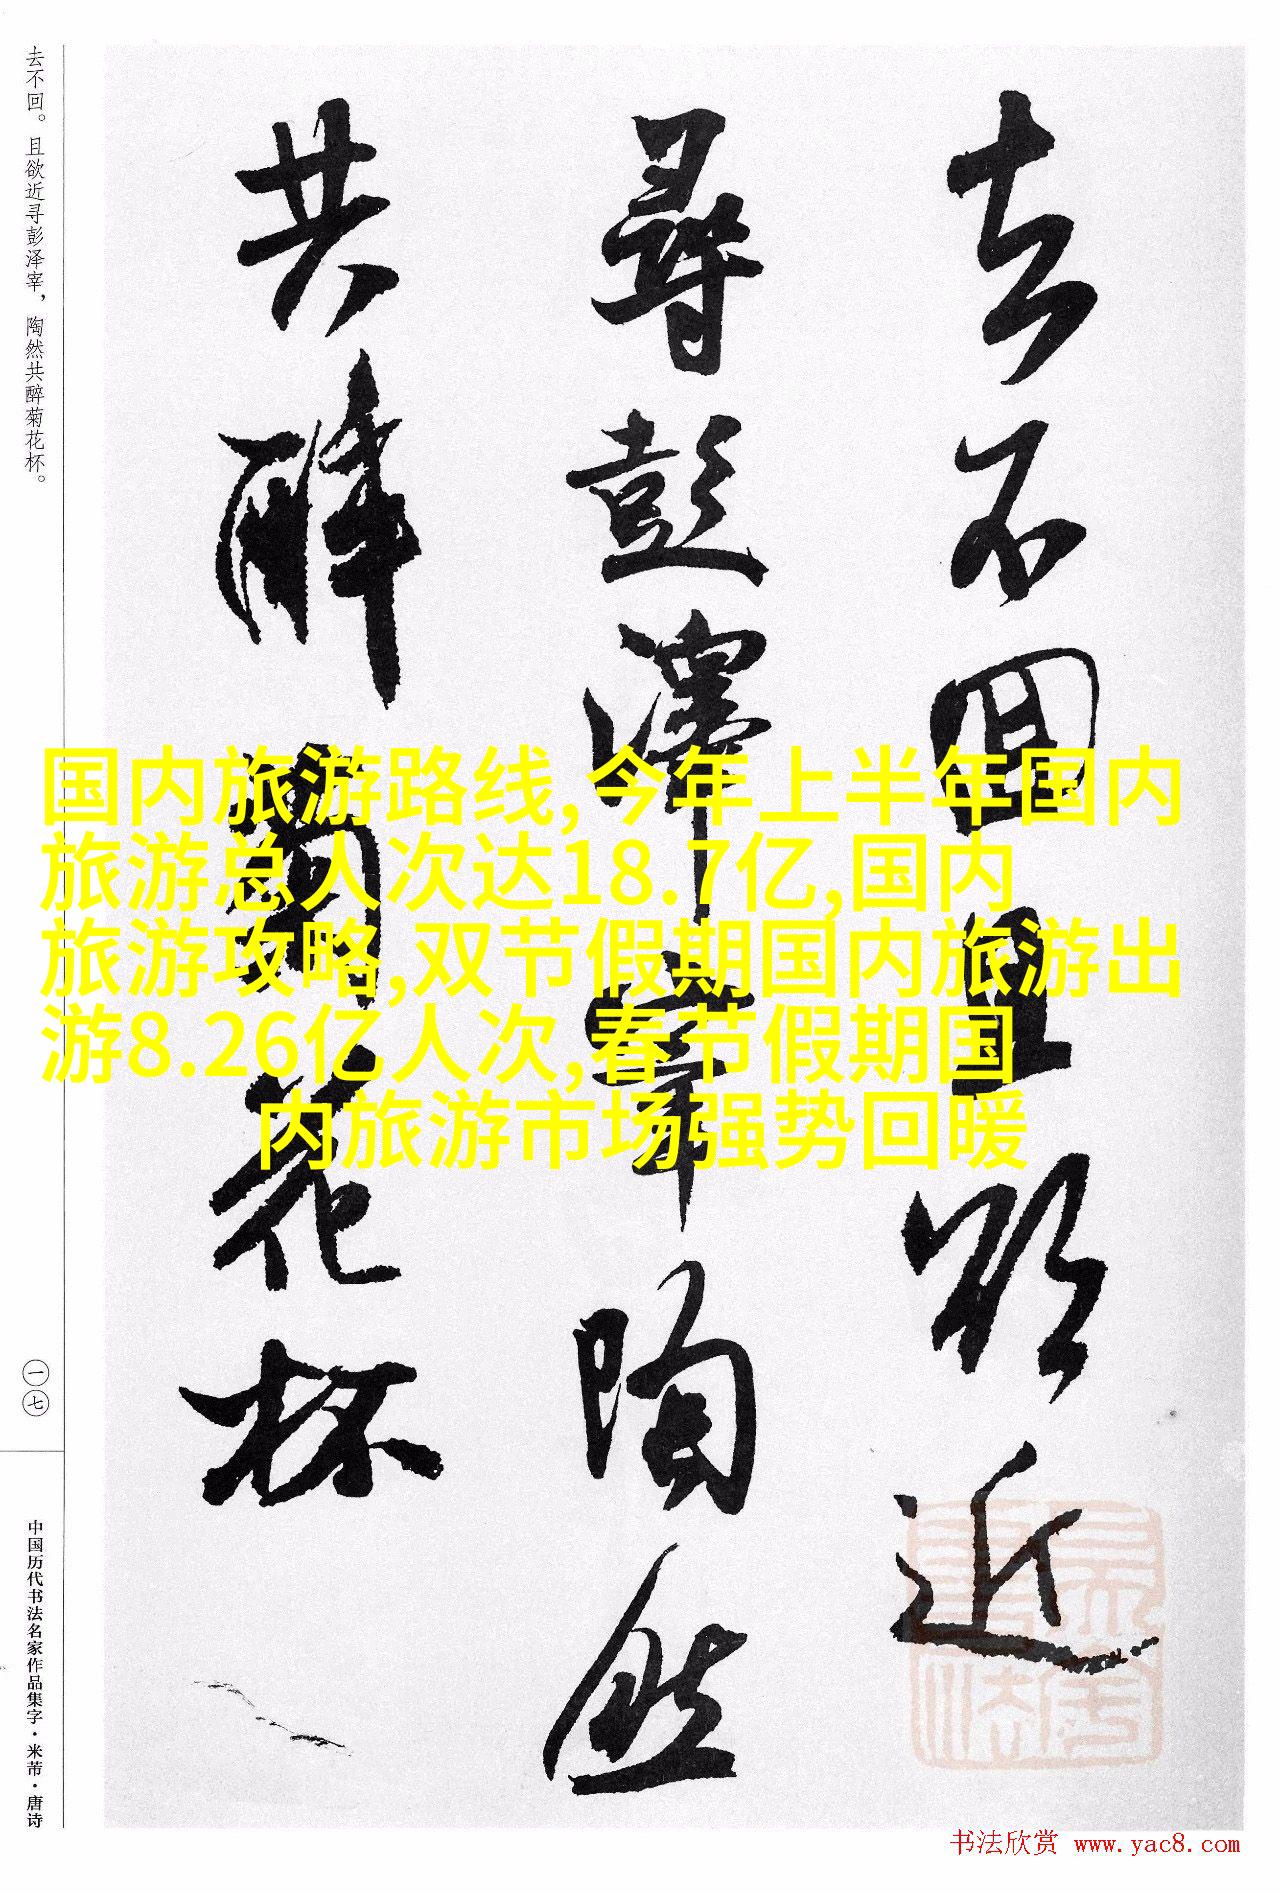 去不回。且欲近寻彭泽宰，陶然共醉菊花杯。
去不回且欲近
尋彭澤宰陶然
共醉菊花杯
国内旅游路线,今年上半年国内
旅游总人次达18.7亿,国内
旅游攻略,双节假期国内旅游出
游8.26亿人次,春节假期国
内旅游市场强势回暖
一七
中国历代书法名家作品集字·米芾·唐诗
书法欣赏 www.yac8.com